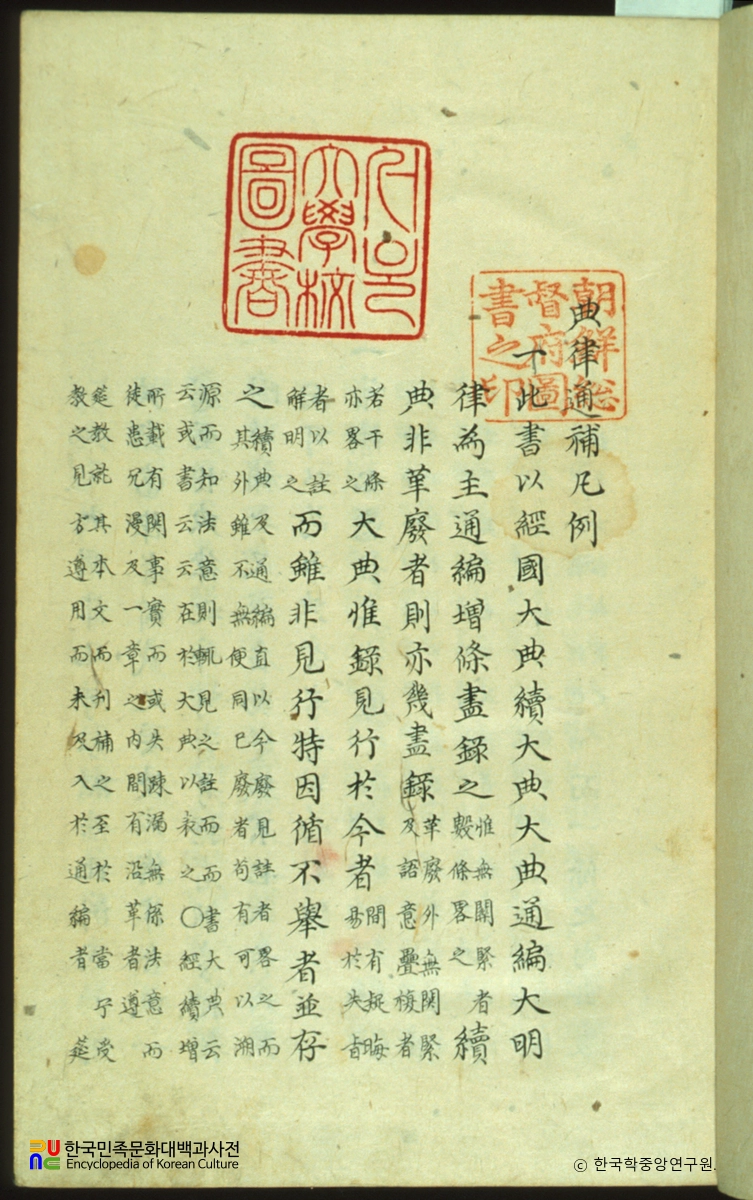 서울
大學校
圖書
朝鮮総
督府圖
書之印
典律通補凡例
一此書以經國大典續大典大典通編大明
律爲主通編增條盡錄之惟無關緊者數條畧之續
典非革廢者則亦幾盡錄革廢外無關緊及語意疊複者
若干條亦畧之大典惟錄見行於今者間有捉晦易於失旨
者以註解明之而雖非見行特因循不舉者並存
之續典及通編直以今廢見註者畧之而其外雖不無便同已廢者苟有可以溯
源而知法意則輒見之註而而書大典云云或書云云在於大典以表之○經續增
所載有關事實而或失踈漏無係法意而徒患冗漫及一章之內間有沿革者遵
筵敎就其本文而刊補之至於當宁受敎之見方遵用而未及入於通編者筵
한국민족문화대백과사전
Encyclopedia of Korean Culture
© 한국학중앙연구원.